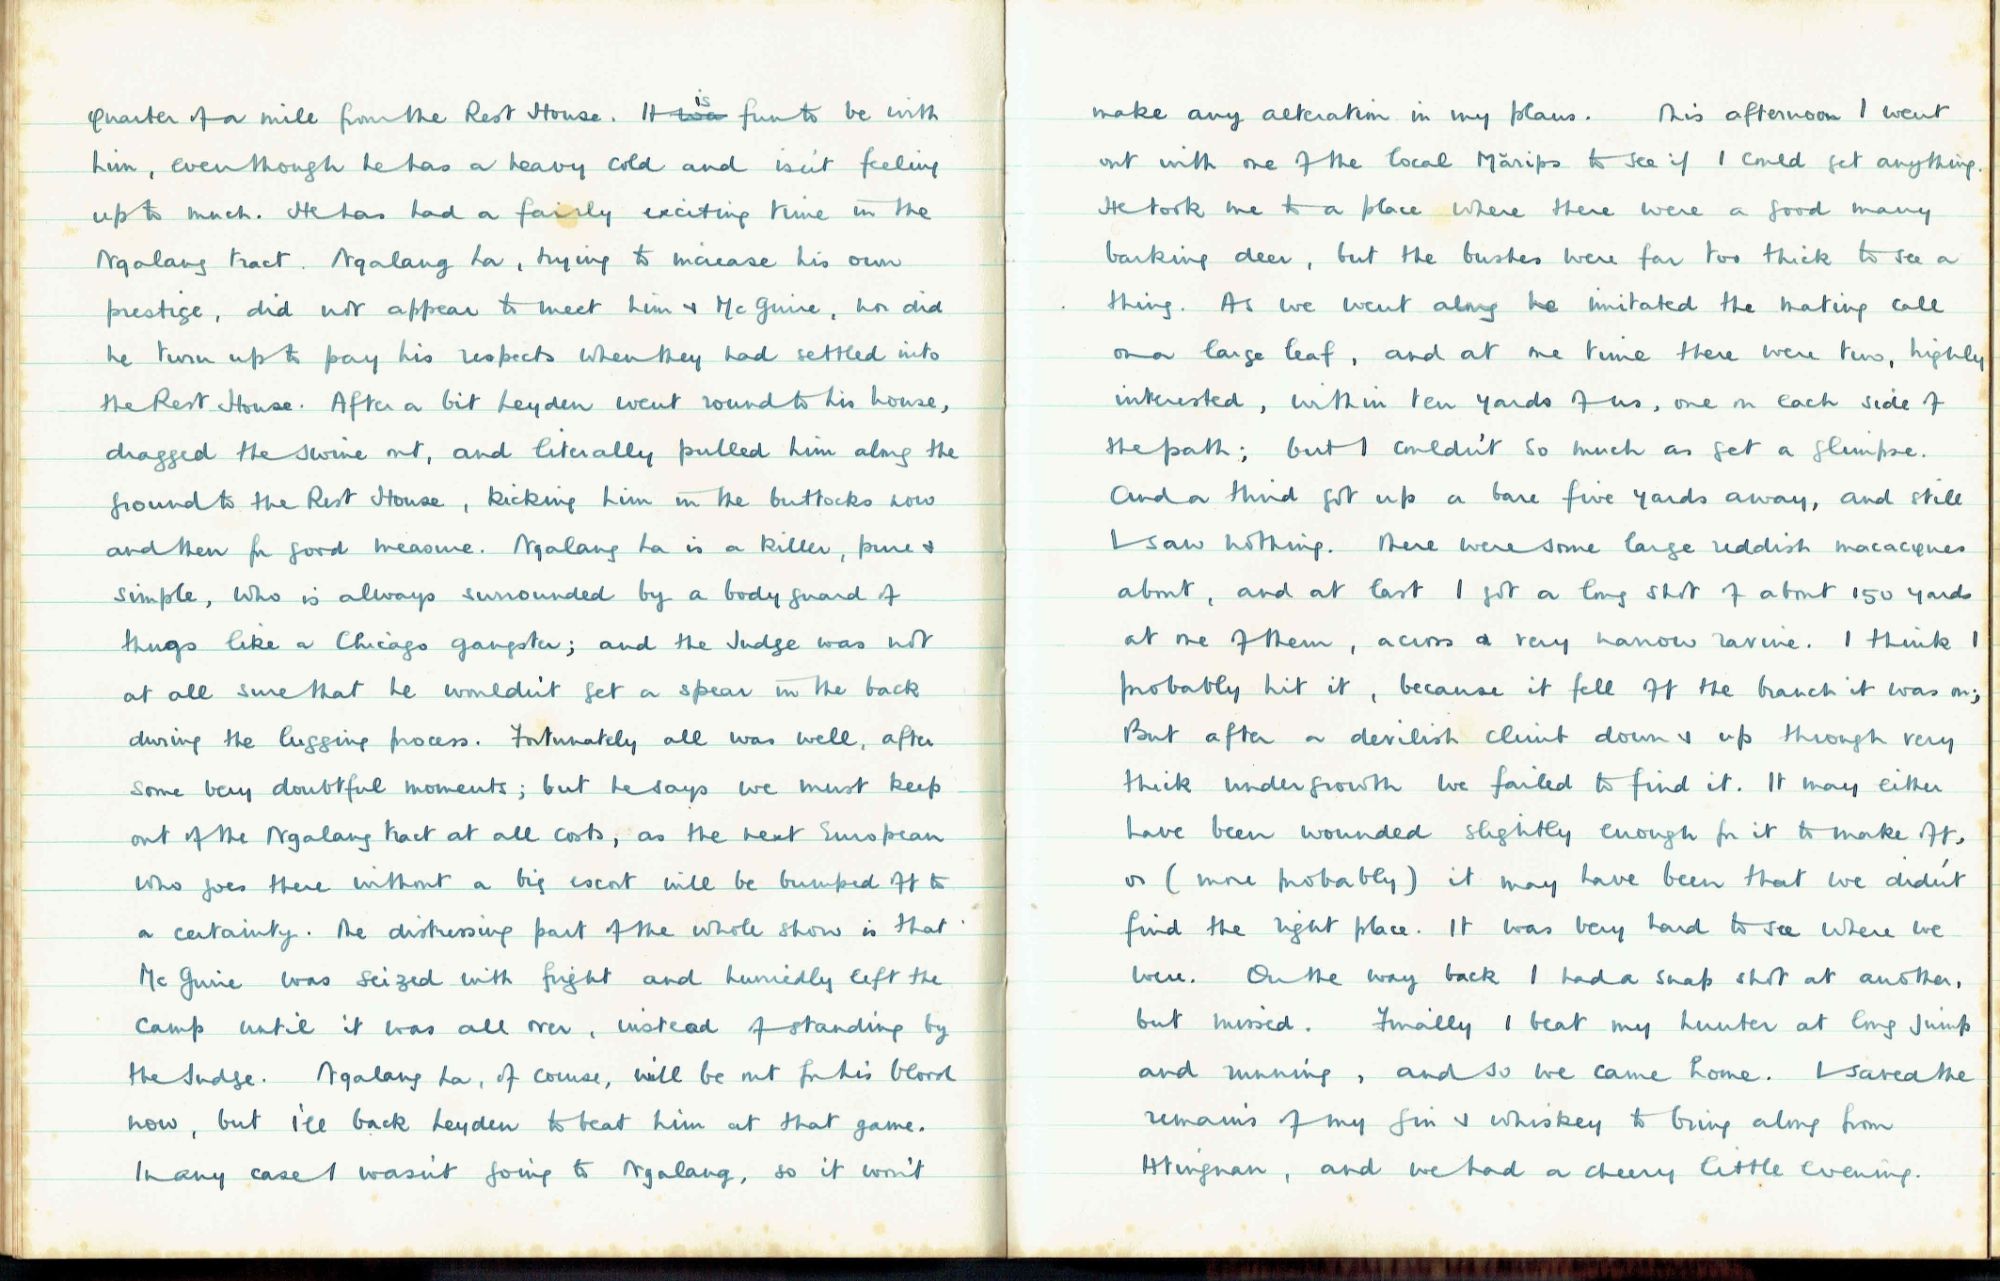 quarter of a mile from the Rest House. It ~~was~~ is fun to be with
him, even though he has a heavy cold and isn't feeling
up to much. He has had a fairly exciting time in the
Ngalang tract. Ngalang La, trying to increase his own
prestige, did not appear to meet him & McGuire, nor did
he turn up to pay his respects when they had settled into
the Rest House. After a bit Leyden went round to his house,
dragged the swine out, and literally pulled him along the
ground to the Rest House, kicking him in the buttocks now
and then for good measure. Ngalang La is a killer, pure &
simple, who is always surrounded by a bodyguard of
thugs like a Chicago gangster; and the Judge was not
at all sure that he wouldn't get a spear in the back
during the lugging process. Fortunately all was well, after
some very doubtful moments; but he says we must keep
out of the Ngalang tract at all costs, as the next European
who goes there without a big escort will be bumped off to
a certainty. The distressing part of the whole show is that
McGuire was seized with fright and hurriedly left the
camp until it was all over, instead of standing by
the Judge. Ngalang La, of course, will be out for his blood
now, but I'll back Leyden to beat him at that game.
In any case I wasn't going to Ngalang, so it won't
make any alteration in my plans. This afternoon I went
out with one of the local Mārips to see if I could get anything.
He took me to a place where there were a good many
barking deer, but the bushes were far too thick to see a
thing. As we went along he imitated the mating call
on a large leaf, and at one time there were two, highly
interested, within ten yards of us, one on each side of
the path; but I couldn't so much as get a glimpse.
And a third got up a bare five yards away, and still
I saw nothing. There were some large reddish macacques
about, and at last I got a long shot of about 150 yards
at one of them, across a very narrow ravine. I think I
probably hit it, because it fell off the branch it was on;
But after a devilish climb down & up through very
thick undergrowth we failed to find it. It may either
have been wounded slightly enough for it to make off,
or (more probably) it may have been that we didn't
find the right place. It was very hard to see where we
were. On the way back I had a snap shot at another,
but missed. Finally I beat my hunter at long jump
and running, and so we came home. I saved the
remains of my gin & whiskey to bring along from
Htingnan, and we had a cheery little evening.